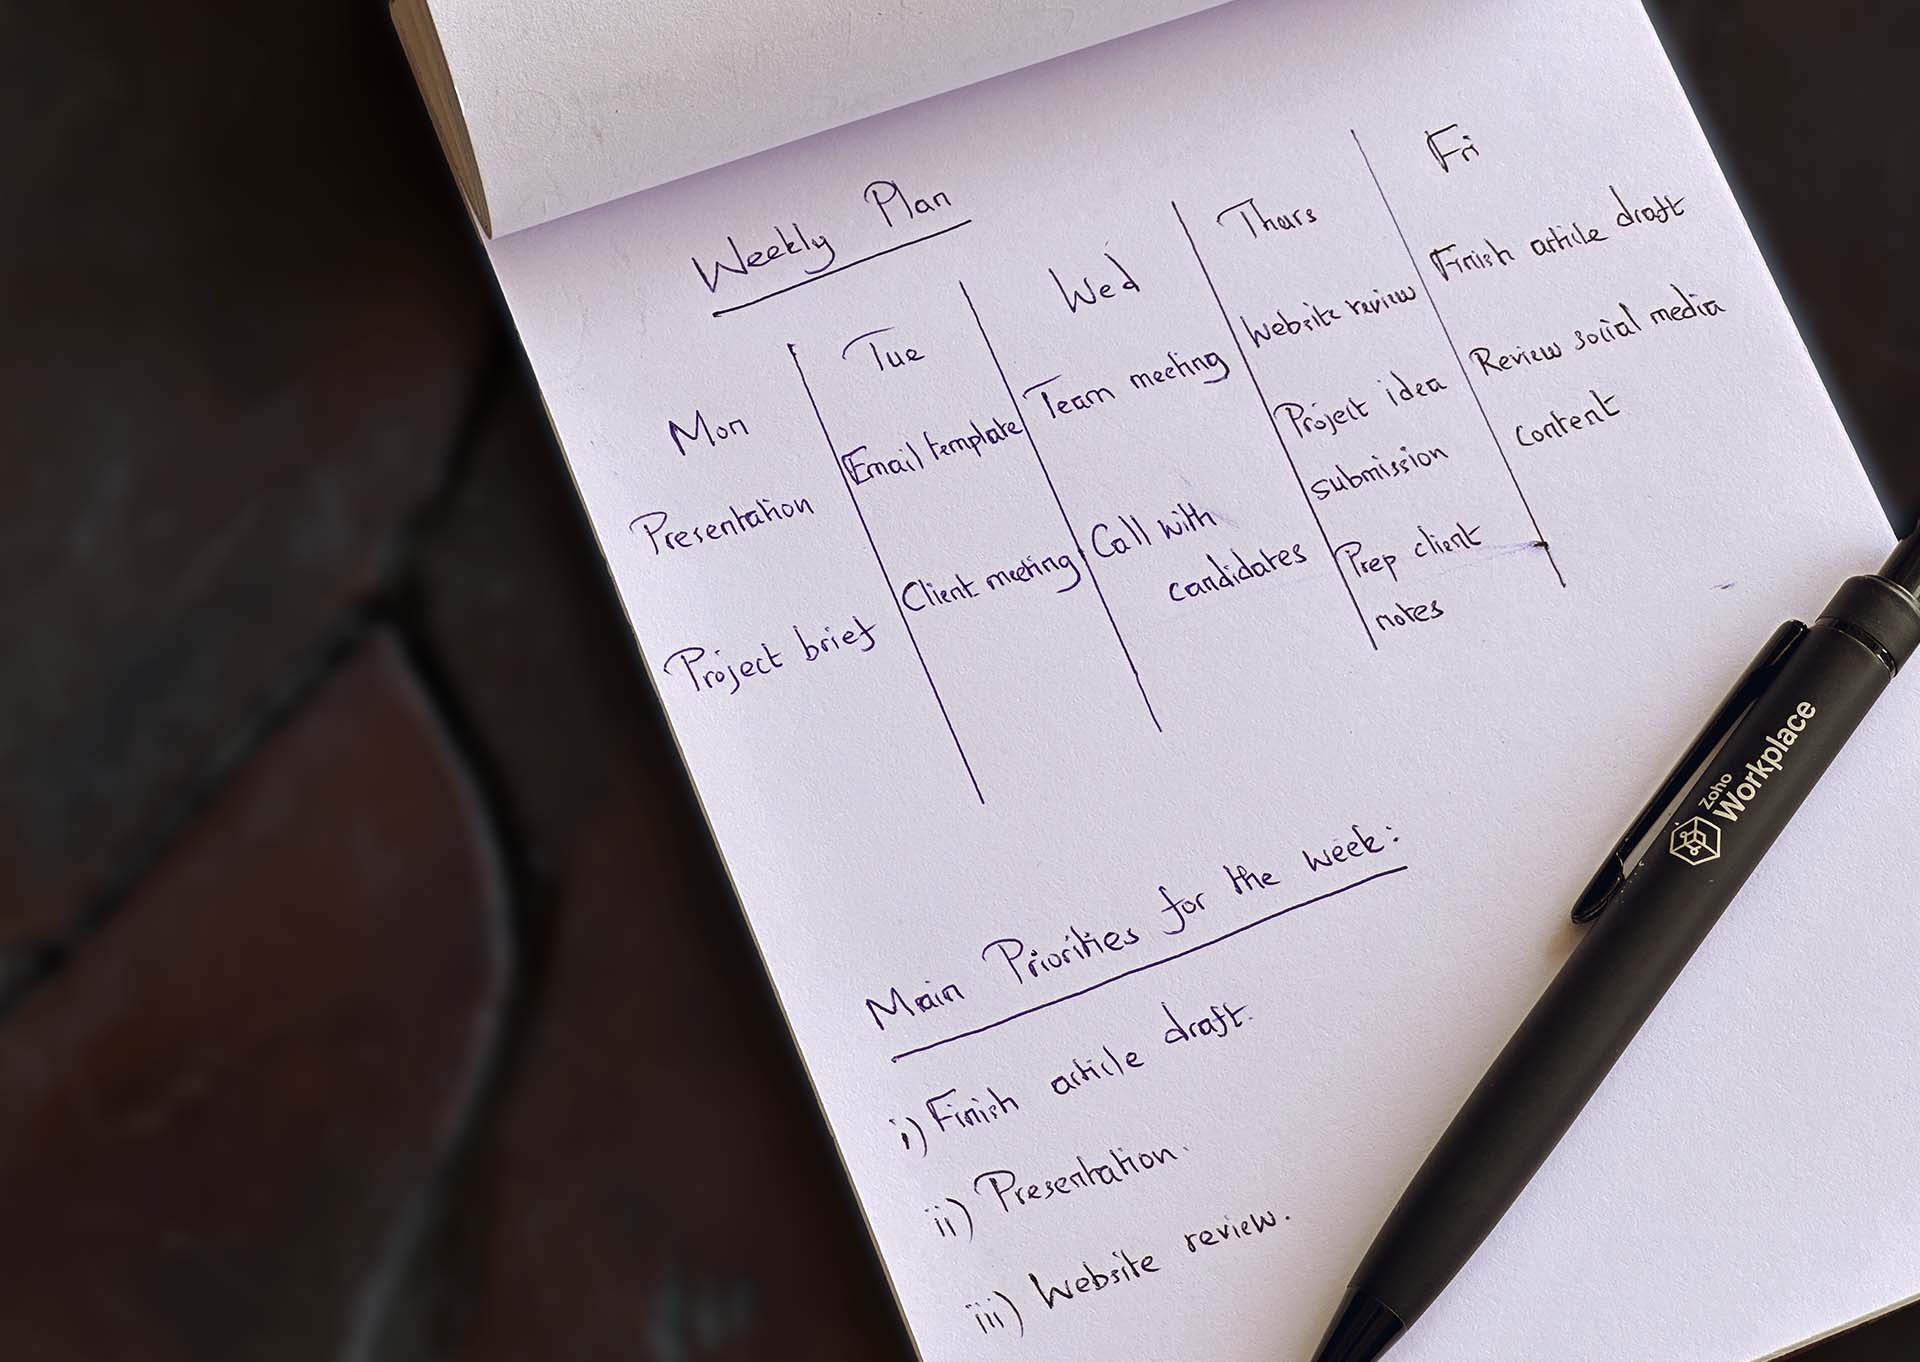 Weekly Plan
Mon
Presentation
Project brief
Tue
Email template
Client meeting
Wed
Team meeting
Call with
candidates
Thurs
Website review
Project idea
submission
Prep client
notes
Fri
Finish article draft
Review social media
content
Main Priorities for the week:
i) Finish article draft.
ii) Presentation.
iii) Website review.
Zoho
Workplace